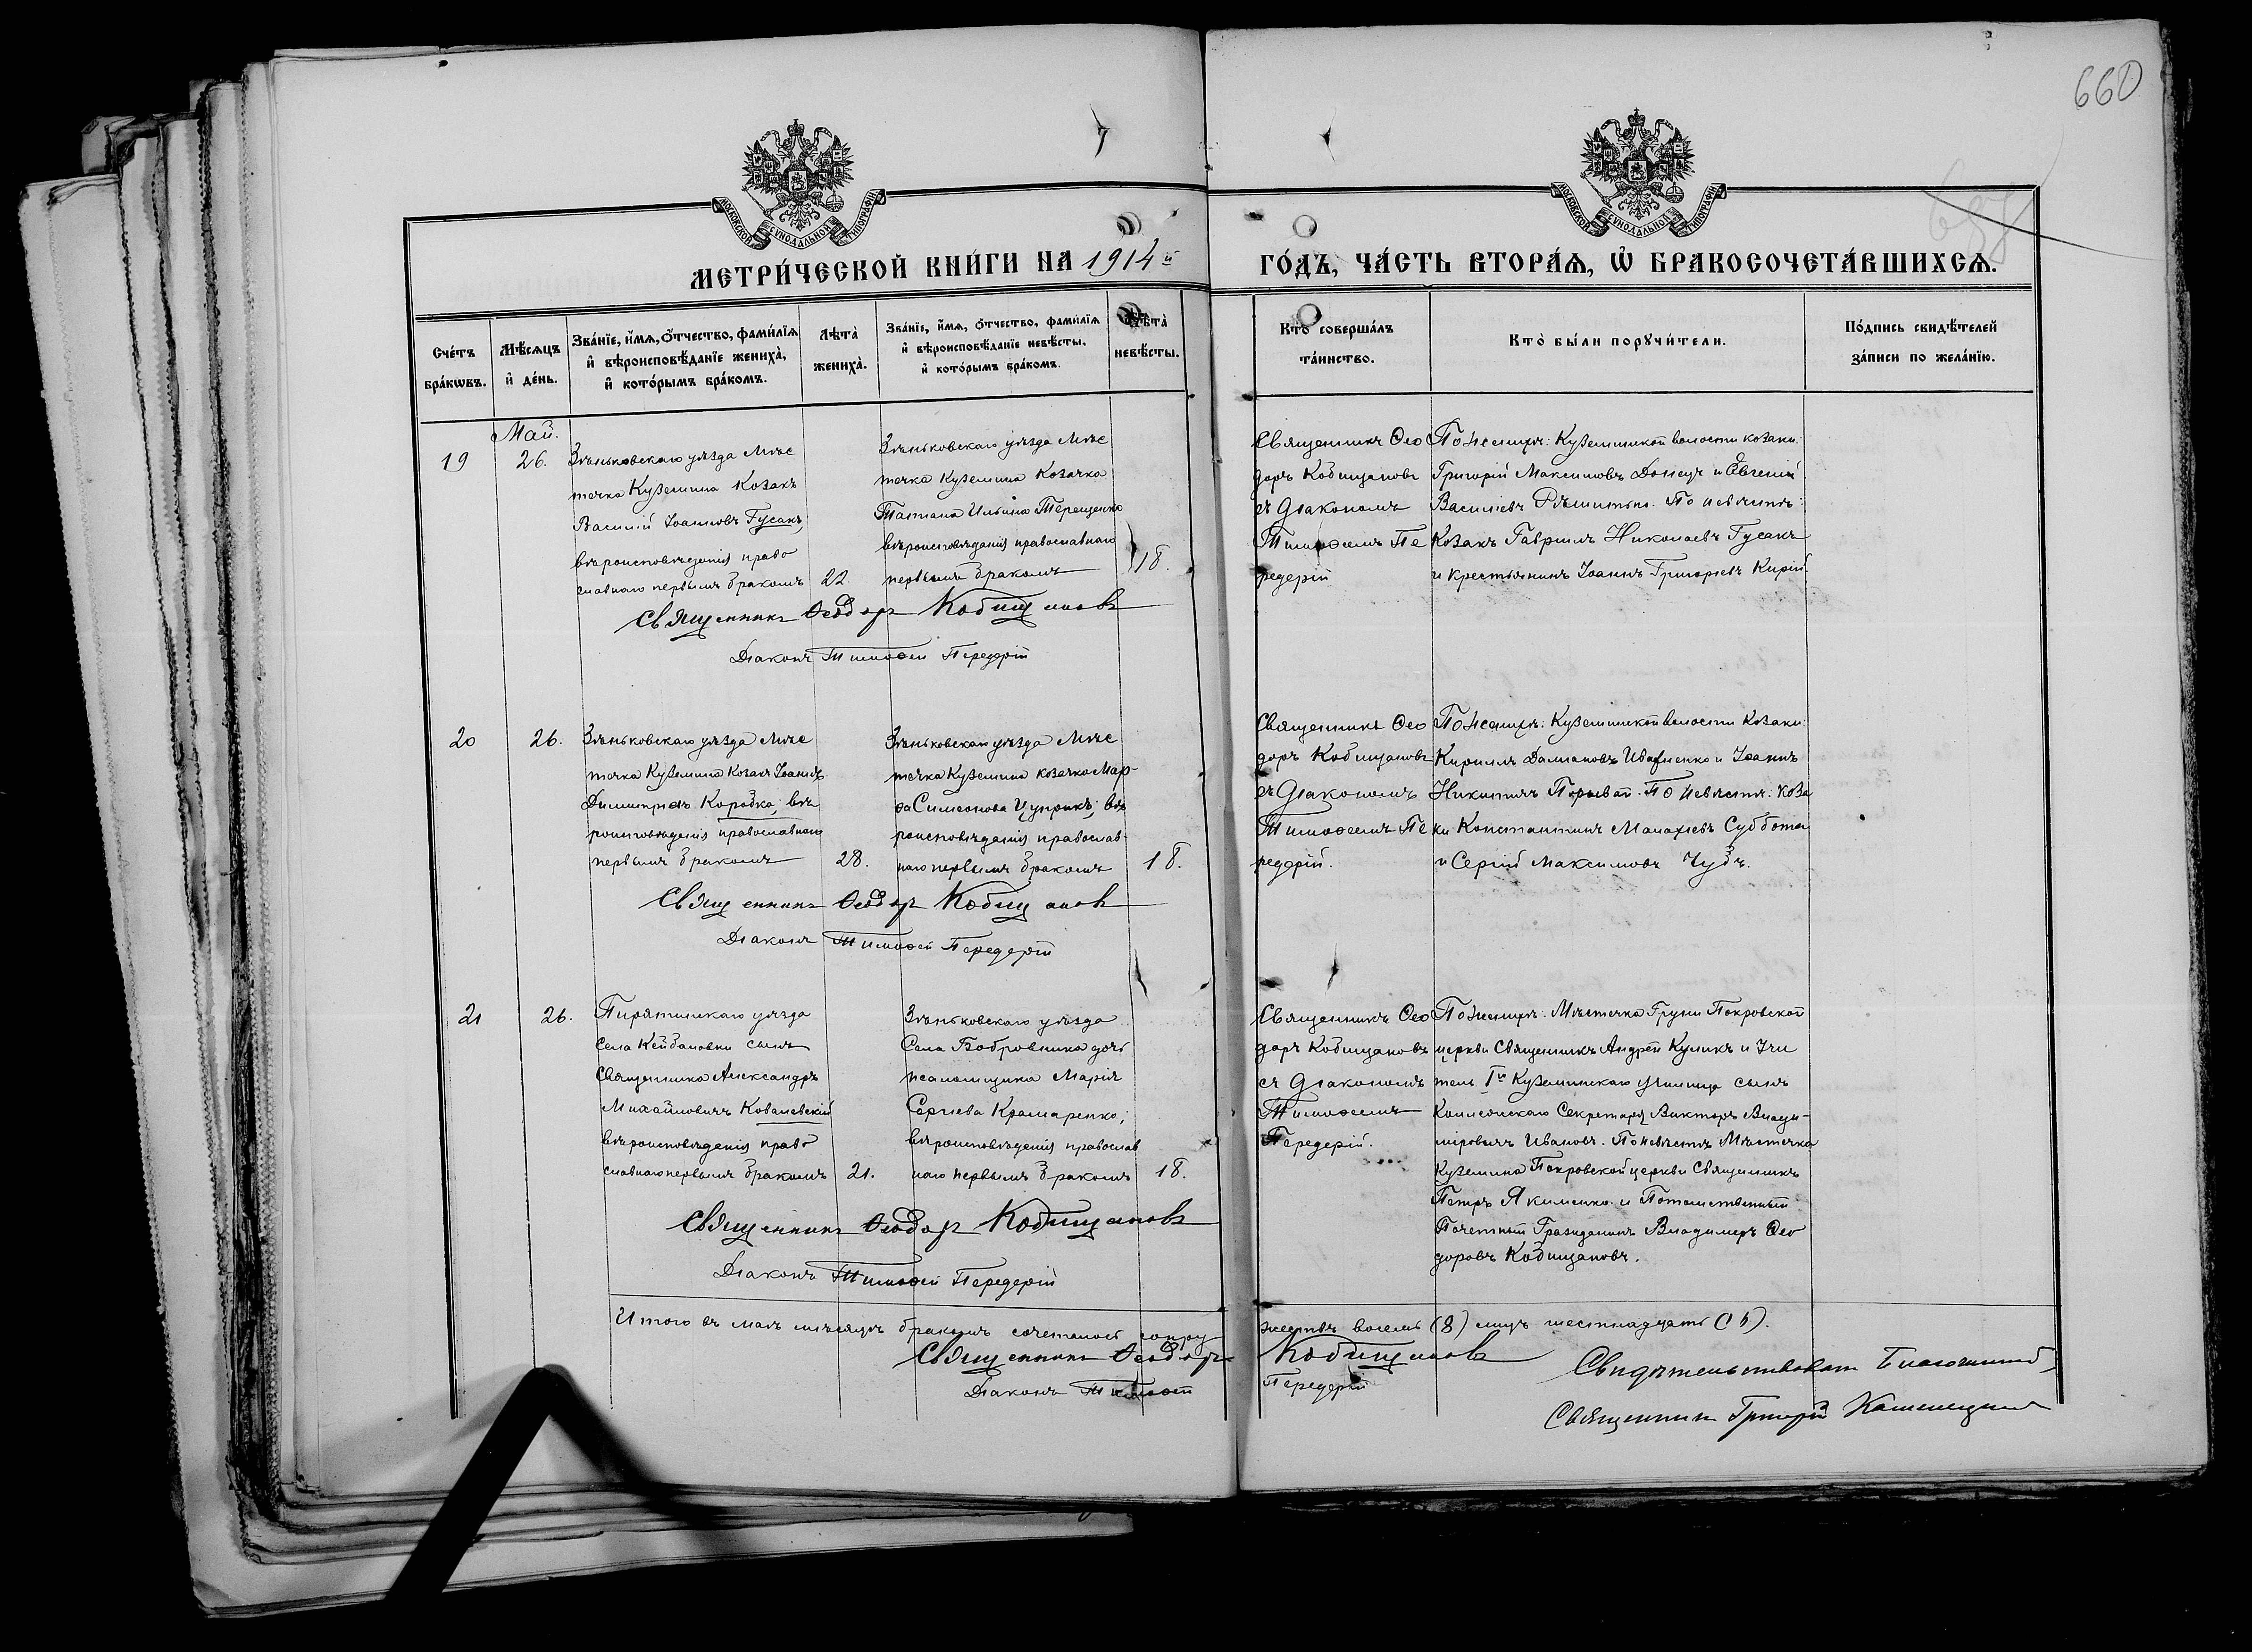 660
МОСКОВСКОЙ СУНОДАЛЬНОЙ ТИПОГРАФІИ
МОСКОВСКОЙ СУНОДАЛЬНОЙ ТИПОГРАФІИ
МЕТРИ́ЧЕСКОЙ КНИ́ГИ НА 1914й ГО́ДЪ, ЧА́СТЬ ВТОРА́Ѧ, Ѡ҆ БРАКОСОЧЕТА́ВШИХСѦ.
Сче́тъ
бра́кѡвъ.
Мѣ́сѧцъ
и҆ де́нь.
Зва́нїе, и҆́мѧ, ѻ҆́тчество, фами́лїѧ
и҆ вѣроисповѣ́данїе жениха̀,
и҆ кото́рымъ бра́комъ.
Лѣта̀
жениха̀.
Зва́нїе, и҆́мѧ, ѻ҆́тчество, фами́лїѧ
и҆ вѣроисповѣ́данїе невѣ́сты,
и҆ кото́рымъ бра́комъ.
Лѣта̀
невѣ́сты.
Кто̀ соверша́лъ
та́инство.
Кто̀ бы́ли порꙋчи́тели.
По́дпись свидѣ́телей
за́писи по жела́нїю.
Май.
19
26.
Зѣньковскаго уѣзда Мѣс
течка Куземина Козакъ
Василій Іоанновъ Гусакъ,
вѣроисповѣданія право
славнаго первымъ бракомъ
22.
Зѣньковскаго уѣзда Мѣс
течка Куземина Козачка
Татіана Ильина Терещенко
вѣроисповѣданія православнаго
первымъ бракомъ
18.
Священникъ Ѳео
доръ Кобищановъ
съ Діакономъ
Тимоѳеемъ Пе
редерій
По женихѣ: Куземинской волости козаки:
Григорій Максимовъ Донецъ и Евгеній
Василіевъ Рѣшитько. По невѣстѣ:
Козакъ Гавріилъ Николаевъ Гусакъ
и крестьянинъ Іоаннъ Григоріевъ Кирій
Священникъ Ѳеодоръ Кобищановъ
Діаконъ Тимоѳей Передерій
20
26.
Зѣньковскаго уѣзда Мѣс
течка Куземина Козакъ Іоаннъ
Димитріевъ Коробка, вѣ
роисповѣданія православнаго
первымъ бракомъ
28.
Зѣньковскаго уѣзда Мѣс
течка Куземина козачка Мар-
ѳа Симеонова Цуприкъ; вѣ
роисповѣданія православ
наго первымъ бракомъ
18.
Священникъ Ѳео
доръ Кобищановъ
съ Діакономъ
Тимоѳеемъ Пе
редерій.
По женихѣ: Куземинской волости Козаки:
Кириллъ Даміановъ и Іоаннъ
Никитичъ По невѣстѣ: коза
ки Константинъ Малахіевъ Суббота
и Сергій Максимовъ Чубъ.
Священникъ Ѳеодоръ Кобищановъ
Діаконъ Тимоѳей Передерій
21
26.
Пирятинскаго уѣзда
Села Кейбаловки сынъ
Священника Александръ
Михайловичъ Ковалевскій
вѣроисповѣданія право
славнаго первымъ бракомъ
21.
Зѣньковскаго уѣзда
Села Бобровника дочь
псаломщика Марія
Сергіева Крамаренко;
вѣроисповѣданія православ
наго первымъ бракомъ
18.
Священникъ Ѳео
доръ Кобищановъ
съ Діакономъ
Тимоѳеемъ
Передерій.
По женихѣ: Мѣстечка Груни Покровской
церкви Священникъ Андрей Куликъ и Учи
тель 1го Куземинскаго училища сынъ
Коллежскаго Секретаря Викторъ Влади-
міровичъ Ивановъ. По невѣстѣ Мѣстечка
Куземина Покровской церкви Священникъ
Петръ Якименко и Потомственный
Почетный Гражданинъ Владимиръ Ѳео
доровъ Кобищановъ.
Священникъ Ѳеодоръ Кобищановъ
Діаконъ Тимоѳей Передерій
Итого въ маѣ мѣсяцѣ бракомъ сочеталось супру
жествъ восемь (8) лицъ шестнадцать
Священникъ Ѳеодоръ Кобищановъ
Діаконъ Тимоѳей Передерій
Свидѣтельствовалъ Благочинный
Священникъ Григорій